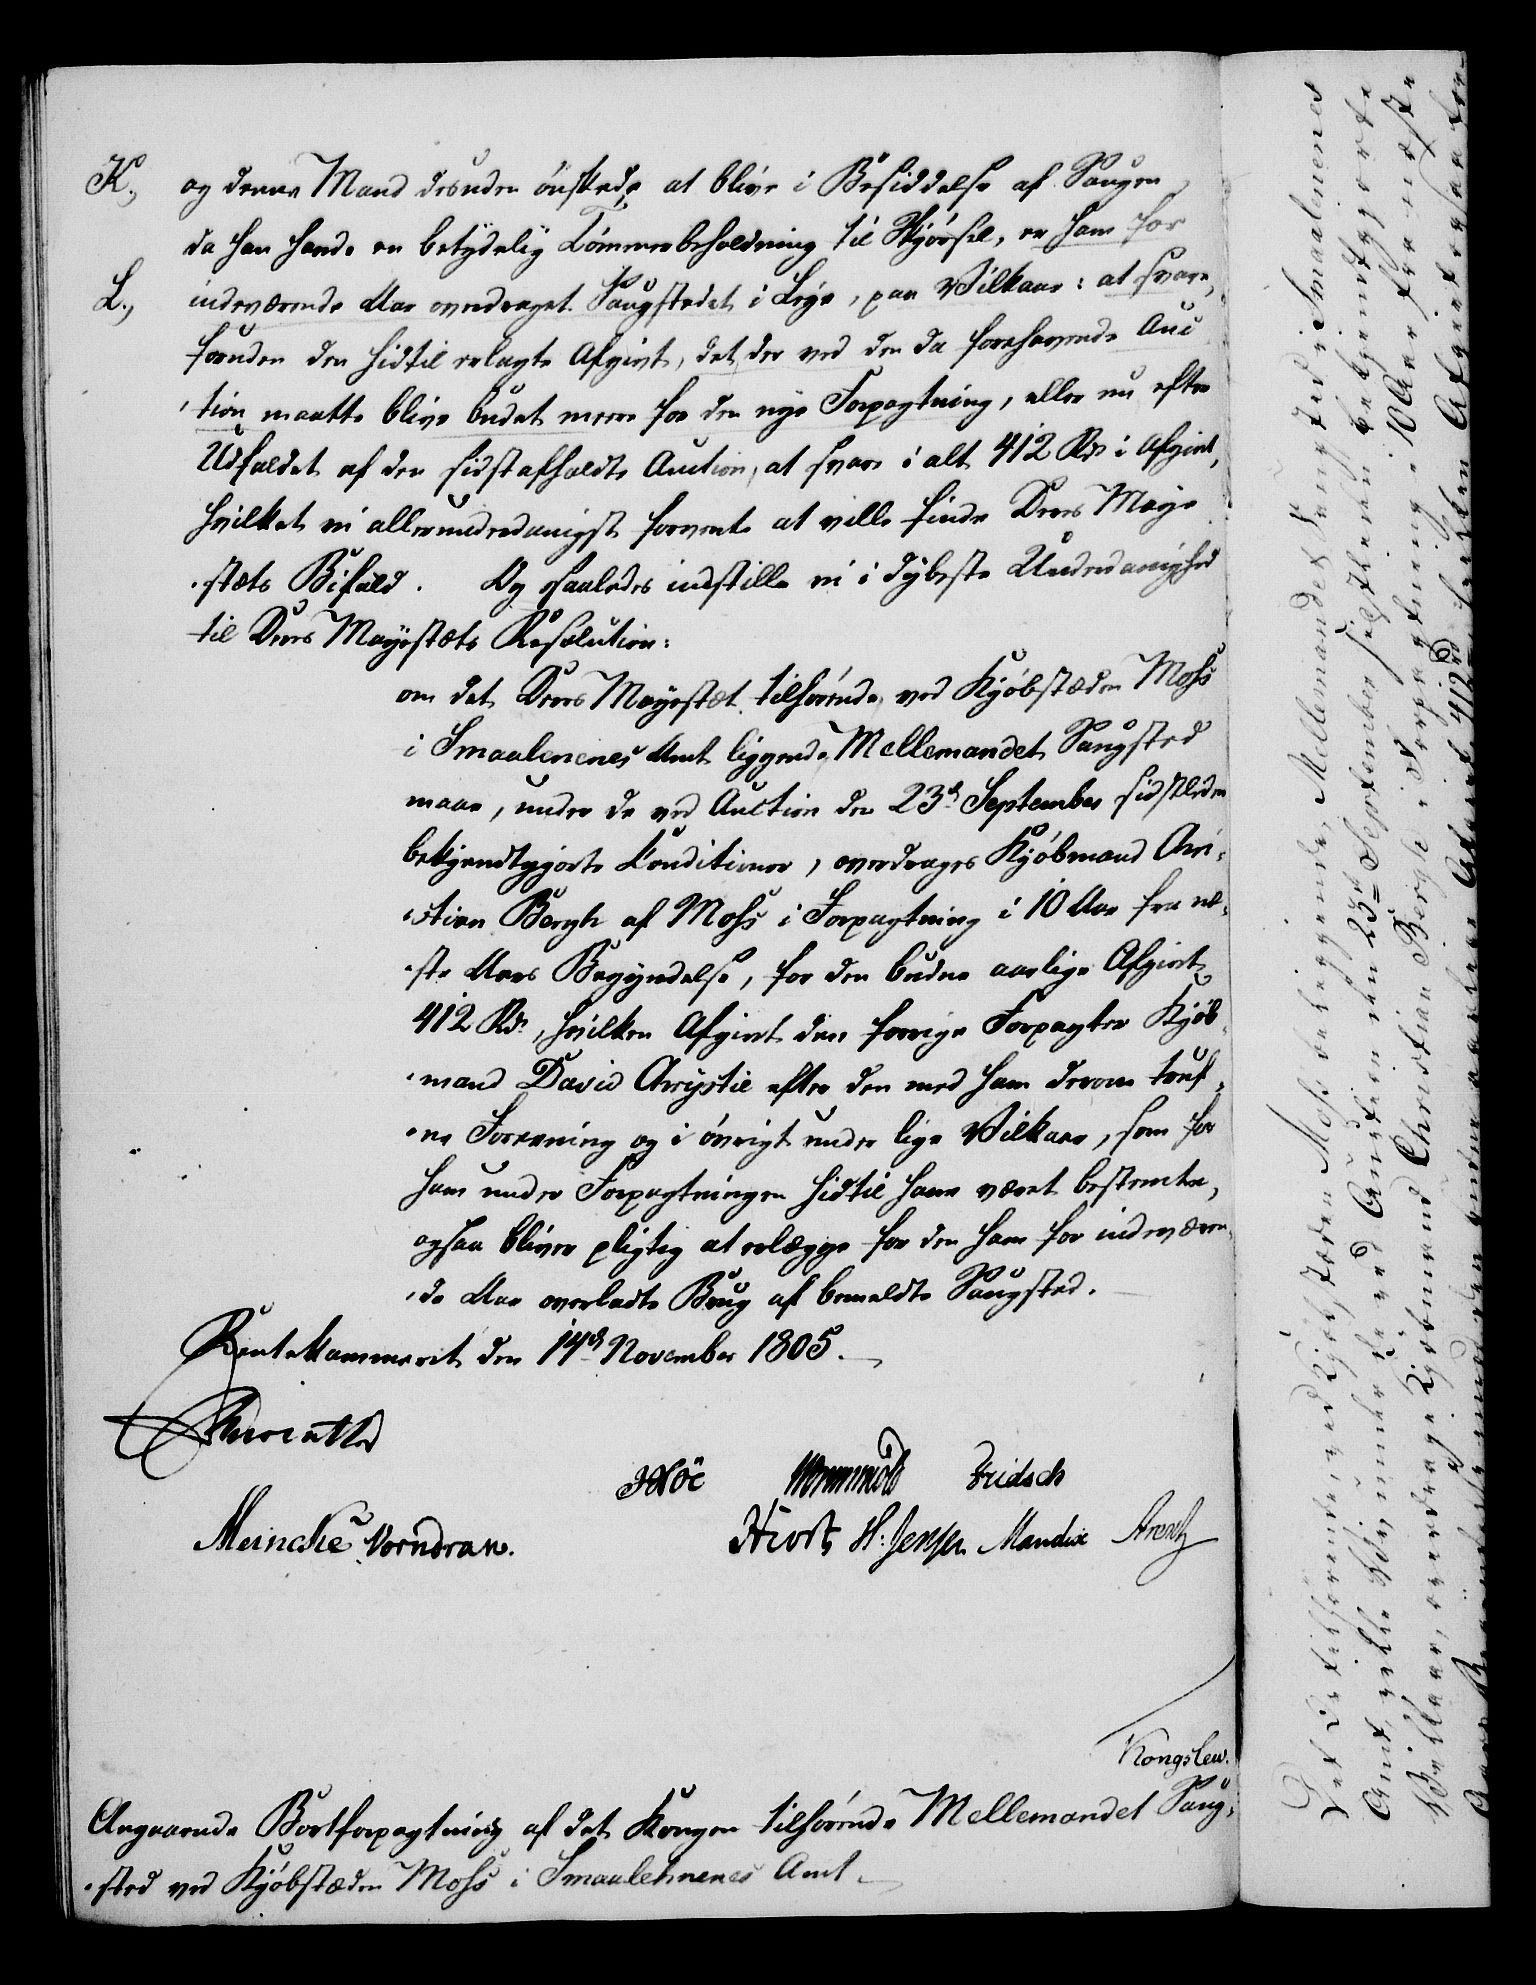 K., og denne Mand desuden ønskede at blive i Besiddelse af Saugen
da han havde en betydelig Tømmerbeholdning til Skjørsel, er ham for
L., indeværende Aar overdraget Saugstedet i Leye, paa Vilkaar: at svare,
foruden den hidtil erlagte Afgivt, det der ved den da forehavende Auc
tion maatte blive budet mere for den nye Forpagtning, eller nu efter
Udfaldet af den sidstafholdte Auction, at svare i alt 412 Rd. i Afgivt,
hvilket vi allerunderdanigst forvente at ville finde Deres Maye
stæts Bifald. Og saaledes indstille vi i dybeste Underdanighed
til Deres Mayestæts Resolution:
om det Deres Mayestæt tilhørende, ved Kjøbstæden Moss
i Smaalenenes Amt liggende Mellemandet Saugsted
maae, under de ved Auction den 23d September sidstleden
bekjendtgjorte Conditioner, overdrages Kjøbmand Chri-
stian Bergh af Moss i Forpagtning i 10 Aar fra næ-
ste Aars Begyndelse, for den budne aarlige Afgivt
412 Rd., hvilken Afgivt den forrige Forpagter Kjøb-
mand David Chrystie efter den med ham derom truf-
ne Forening og i øvrigt under lige Vilkaar, som for
ham under Forpagtningen hidtil have været bestemte,
ogsaa bliver pligtig at erlægge for den ham for indeværen-
de Aar overladte Brug af bemeldte Saugsted.
Rentekammeret den 14d November 1805.
Reventlow
Høe Wormskiold Fridsch
Meincke Vorndran. Hiort H. Jensen Mandix Arentz
Kongslew.
Angaaende Bortforpagtning af det Kongen tilhørende Mellemandet Saug-
sted ved Kjøbstæden Moss i Smaalehnenes Amt.
Det Os tilhørende, ved Kjøbstæden Moss beliggende, Mellemandet Saugsted i Smaalenenes
Amt, ville Vi, under de ved Auction den 23de September sidstleden bekjendtgjorte
Vilkaar, overdrage Kjøbmand Christian Bergh i Forpagtning i 10 Aar fra næste
Aars Begyndelse, imod den budne aarlige Afgivt 412 rd